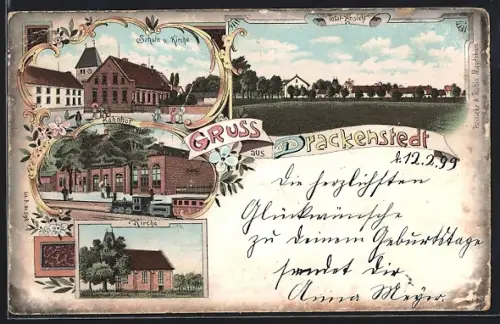 Schule u. Kirche
Total-Ansicht
Bahnhof
GRUSS
aus
Drackenstedt
d. 12.2.99
Kirche
Die herzlichsten
Glückwünsche
zu deinem Geburtstage
sendet Dir
Anna Meyer.